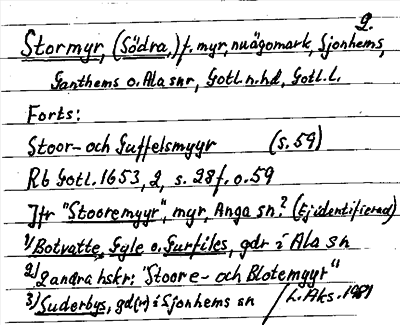 2.
Stormyr, (Södra,) f. myr, nuägomark, Sjonhems,
Ganthems o. Ala snr, Gotl. n. hd, Gotl. l.
Forts:
Stoor- och Guffelsmyyr (s. 59)
Rb Gotl. 1653, 2, s. 28 f. o. 59
Jfr "Stooremyyr", myr, Anga sn? (Ej identifierad)
1) Botvatte, Gyle o. Surfiles, gdr i Ala sn
2) 2 andra hskr: "Stoore- och Blotemyyr"
3) Suderbys, gd(r) i Sjonhems sn / L. Aks. 1981